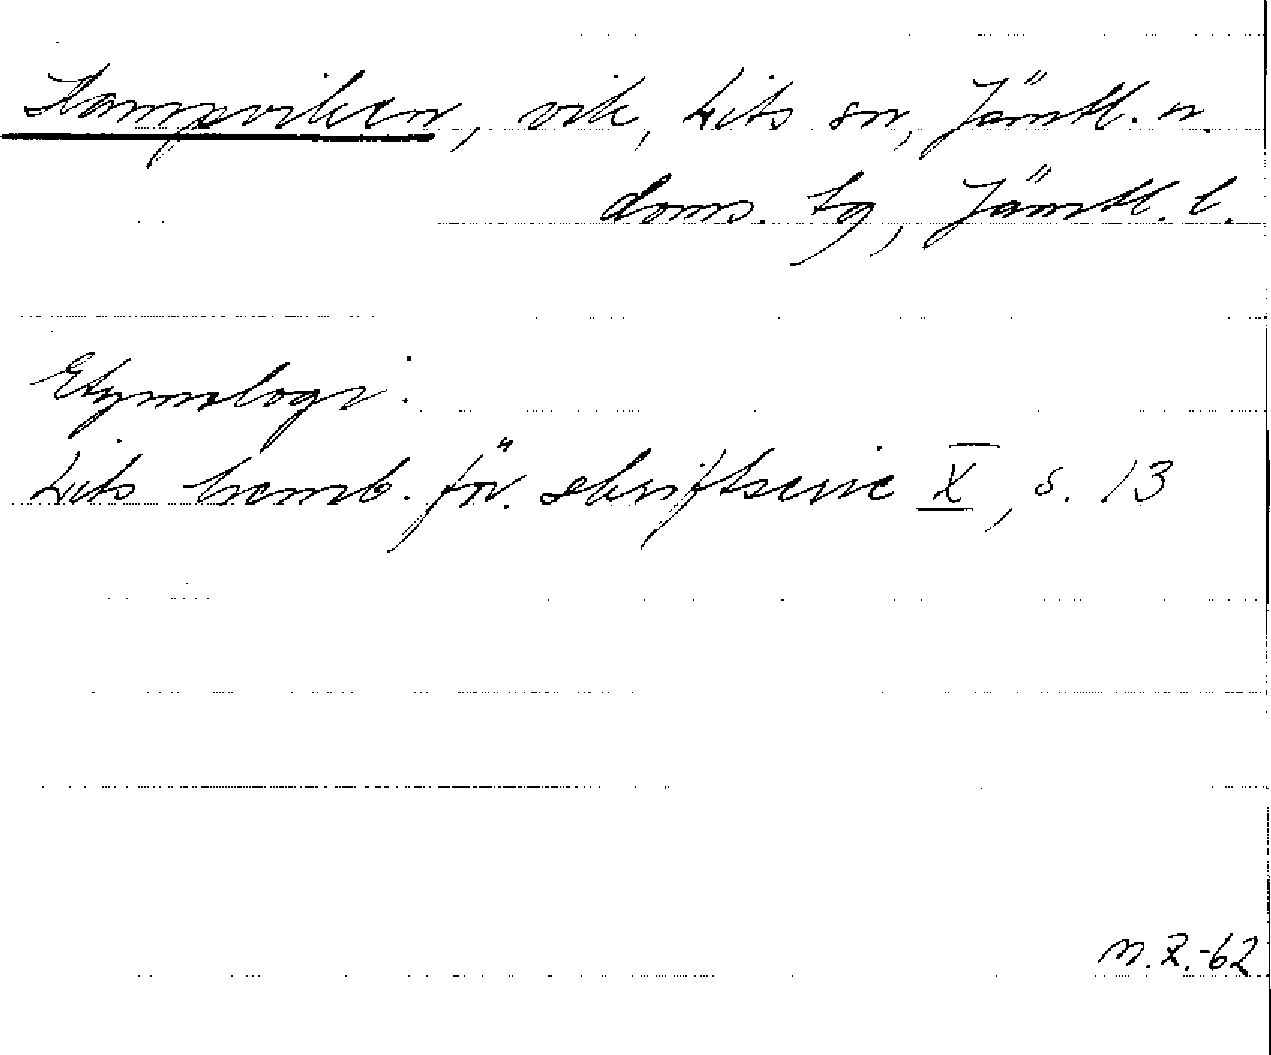 Kampviken, vik, Lits sn, Jämtl. n.
doms. tg, Jämtl. l.
Etymologi:
Lits hemb. för. skriftserie X, s. 13
M.Z.-62